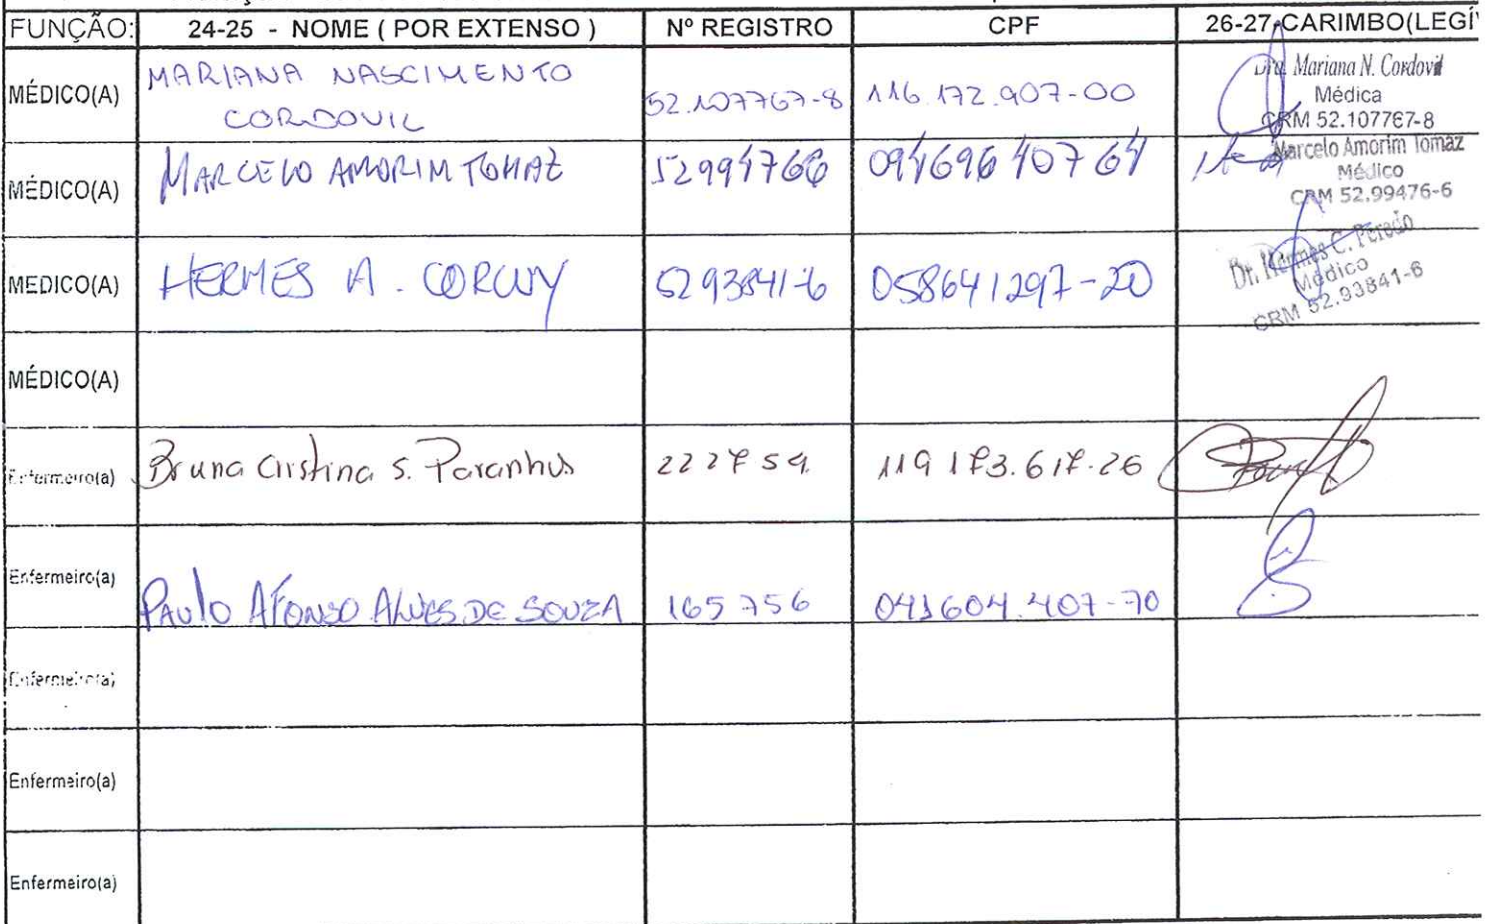 FUNÇÃO: 24-25 - NOME ( POR EXTENSO ) Nº REGISTRO CPF 26-27-CARIMBO(LEGÍV
MÉDICO(A) MARIANA NASCIMENTO CORDOVIL 52.107767-8 116.172.907-00
Dra. Mariana N. Cordovil
Médica
CRM 52.107767-8
MÉDICO(A) MARCELO AMORIM TOMAZ 52994766 09469640764
Marcelo Amorim Tomaz
Médico
CRM 52.99476-6
MEDICO(A) HERMES A. 5293841-6 058641297-20
Dr. Hermes C. Peredo
Médico
CRM 52.93841-6
MÉDICO(A)
Enfermeiro(a) Bruna Cristina S. Paranhos 222754 119 173.617.26
Enfermeiro(a) PAULO AFONSO ALVES DE SOUZA 165756 041604.407-70
Enfermeiro(a)
Enfermeiro(a)
Enfermeiro(a)